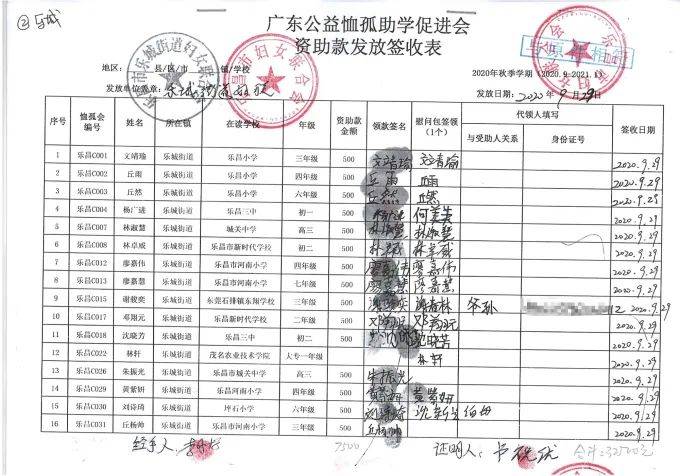 ②乐城
广东公益恤孤助学促进会
资助款发放签收表
地区: 县/区/市 镇/学校
2020年秋季学期(2020.9-2021.1)
发放单位盖章:
发放日期: 2020年9月29日
序号 恤孤会编号 姓名 所在镇 在读学校 年级 资助款金额 领款签名 慰问包签领(1个) 代领人填写 签收日期
与受助人关系 身份证号
1 乐昌C001 文靖瑜 乐城街道 乐昌小学 三年级 500 文靖瑜 文靖瑜 2020.9.29
2 乐昌C002 丘雨 乐城街道 乐昌小学 四年级 500 丘雨 丘雨 2020.9.29
3 乐昌C003 丘然 乐城街道 乐昌小学 六年级 500 丘然 丘然 2020.9.29
4 乐昌C004 杨广进 乐城街道 乐昌三中 初一 500 何美英 2020.9.29
5 乐昌C007 林淑慧 乐城街道 城关中学 高三 500 林淑慧 林淑慧 2020.9.29
6 乐昌C008 林卓威 乐城街道 乐昌市新时代学校 初二 500 林卓威 2020.9.29
7 乐昌C012 廖嘉伟 乐城街道 乐昌市河南小学 四年级 500 廖嘉伟 廖嘉伟 2020.9.29
8 乐昌C013 廖嘉慧 乐城街道 乐昌市河南小学 七年级 500 廖嘉慧 2020.9.29
9 乐昌C015 谢骏奕 乐城街道 东莞石排镇东翔学校 三年级 500 爷孙 2020.9.29
10 乐昌C017 邓翔元 乐城街道 乐昌新时代学校 二年级 500 2020.9.29
11 乐昌C018 沈晓芳 乐城街道 乐昌三中 初二 500 沈晓芳 2020.9.29
12 乐昌C022 林轩 乐城街道 茂名农业技术学院 大专一年级 林轩 2020.9.29
13 乐昌C026 朱振光 乐城街道 乐昌市城关中学 高三 500 朱振光 2020.9.29
14 乐昌C029 黄紫妍 乐城街道 乐昌河南小学 四年级 500 黄紫妍 2020.9.29
15 乐昌C030 刘诗琦 乐城街道 坪石小学 六年级 500 伯母 2020.9.29
16 乐昌C031 丘杨帅 乐城街道 乐昌市河南小学 三年级 500 丘杨帅 2020.9.29
经手人: 7500 证明人: 合计: